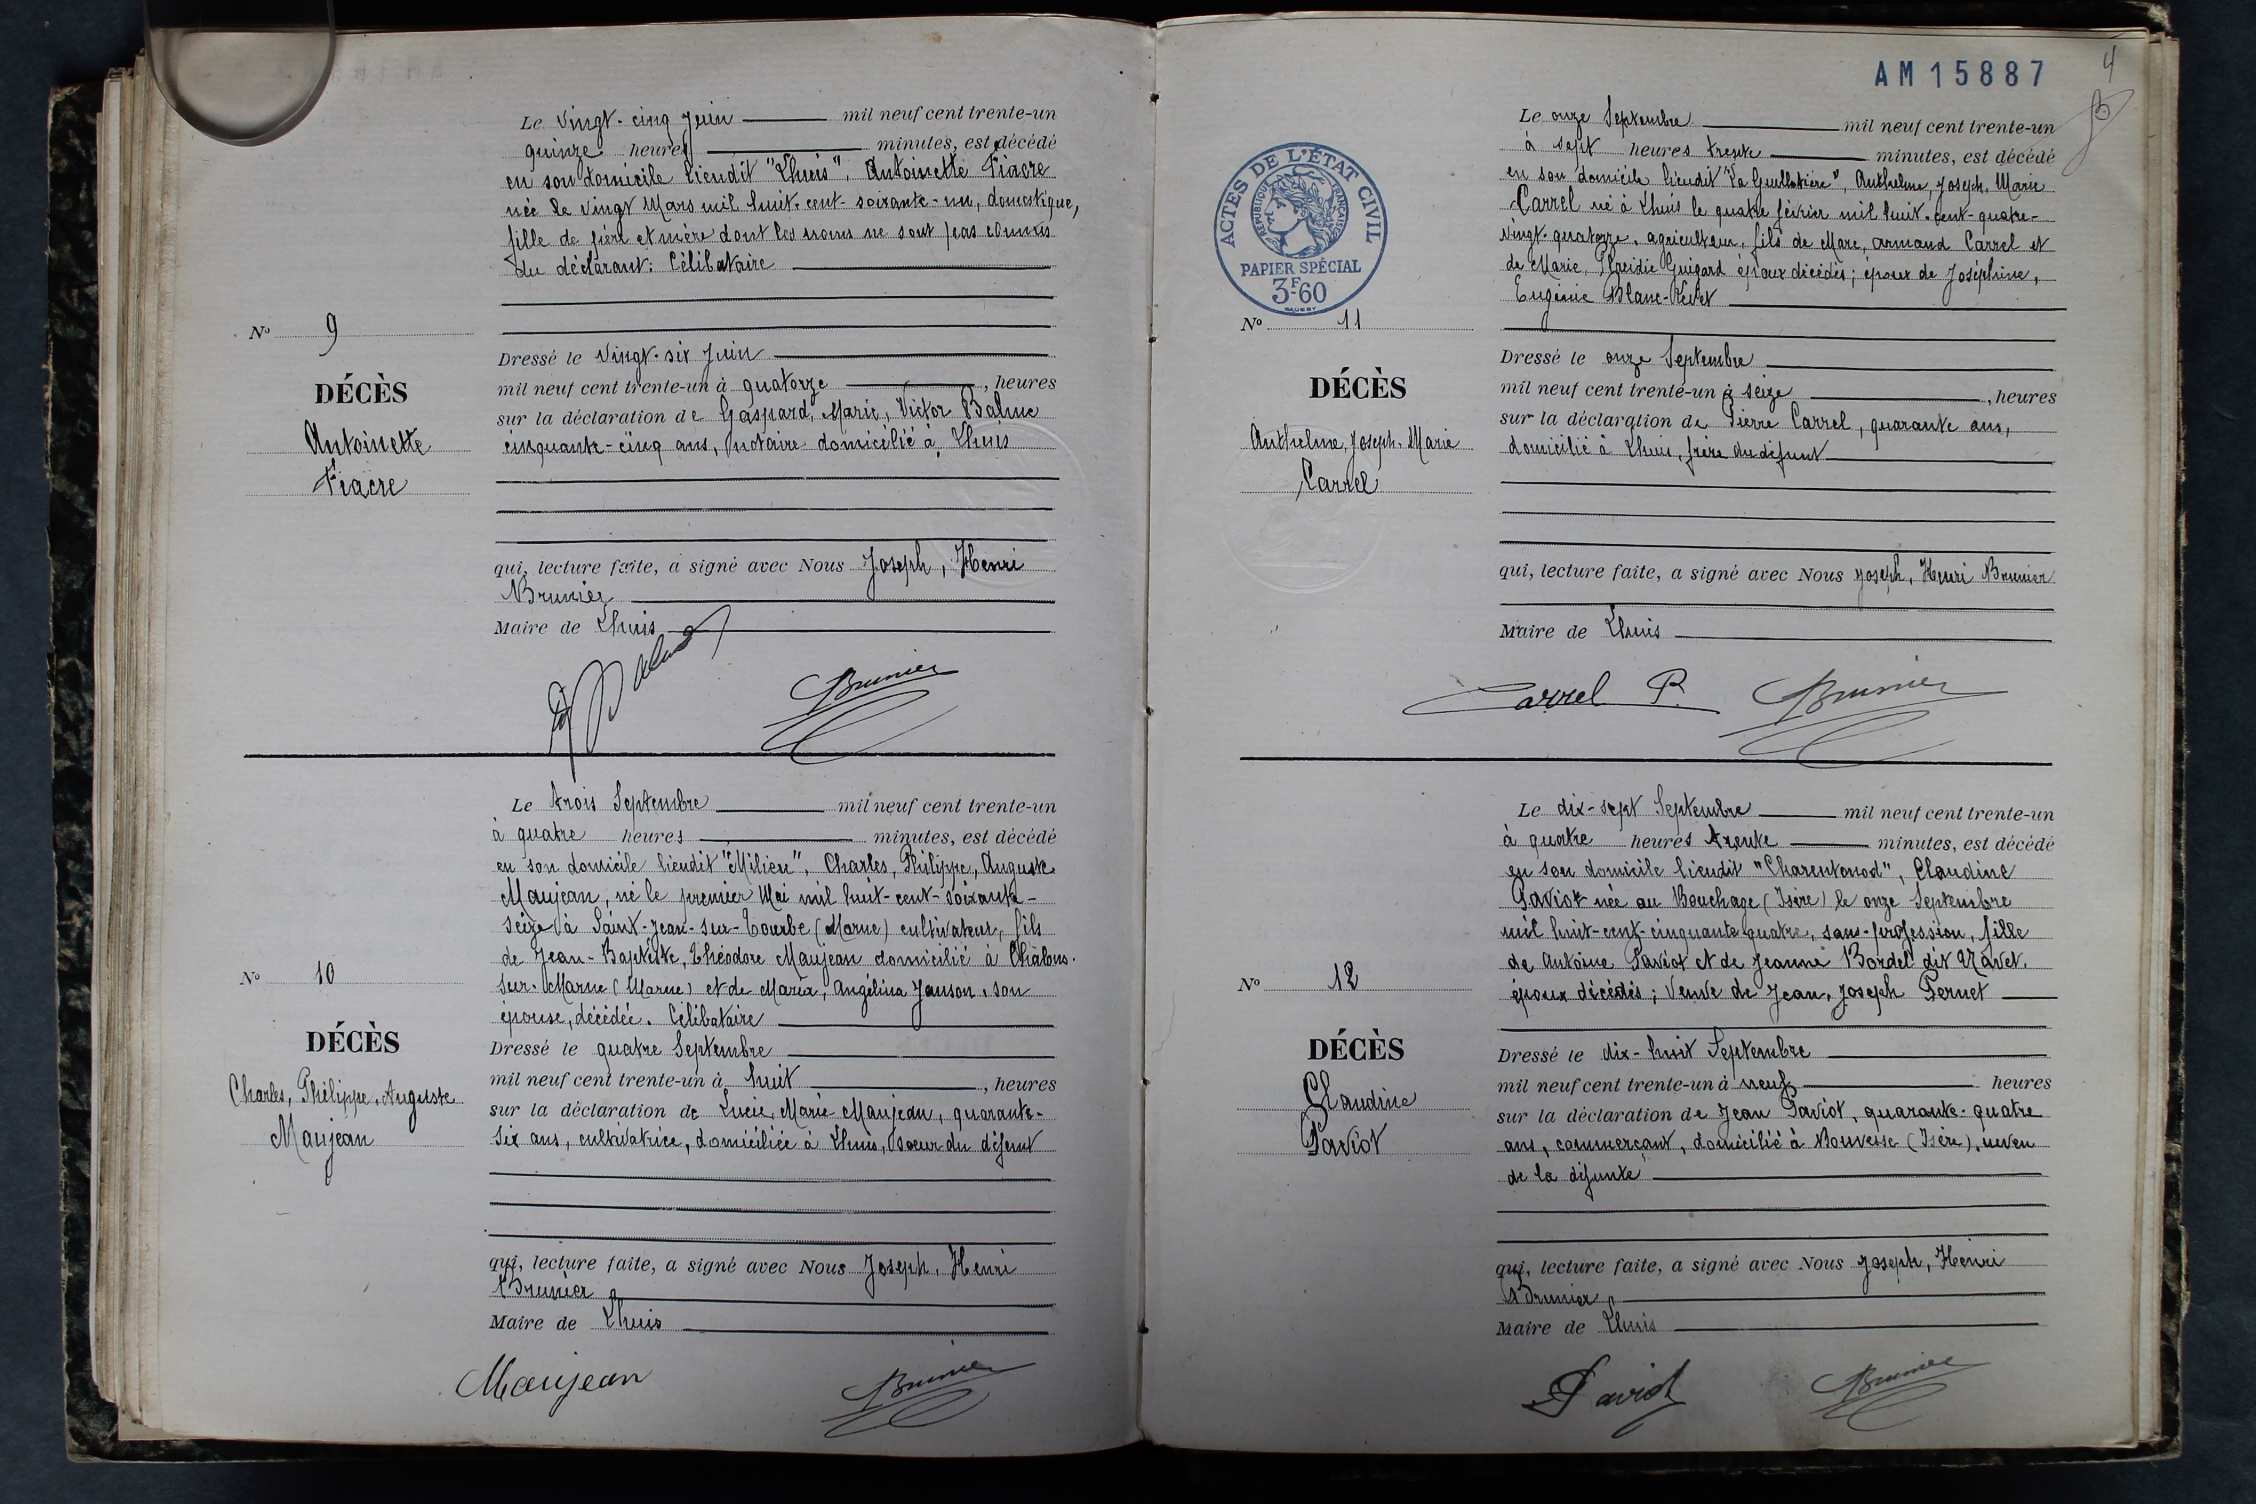 Le vingt-cinq Juin mil neuf cent trente-un
quinze heures minutes, est décédé
en son domicile lieudit "Lhuis", Antoinette Fiacre
née le vingt Mars mil huit-cent-soixante-un, domestique,
fille de père et mère dont les noms ne sont pas connus
du déclarant: Célibataire
No 9
DÉCÈS
Antoinette
Fiacre
Dressé le vingt-six Juin
mil neuf cent trente-un à quatorze, heures
sur la déclaration de Gaspard, Marie, Victor Balme
cinquante-cinq ans, notaire domicilié à Lhuis
qui, lecture faite, a signé avec Nous Joseph, Henri
Brunier
Maire de Lhuis
Balme
Brunier
Le trois Septembre mil neuf cent trente-un
à quatre heures minutes, est décédé
en son domicile lieudit "Milieu", Charles, Philippe, Auguste
Maujean, né le premier Mai mil huit-cent-soixante-
seize à Saint-Jean-sur-Tourbe (Marne) cultivateur, fils
de Jean-Baptiste, Théodore Maujean domicilié à Châlons-
sur-Marne (Marne) et de Maria, Angélina Janson, son
épouse, décédée. Célibataire
No 10
DÉCÈS
Charles, Philippe, Auguste
Maujean
Dressé le quatre Septembre
mil neuf cent trente-un à huit, heures
sur la déclaration de Lucie, Marie Maujean, quarante-
six ans, cultivatrice, domiciliée à Lhuis, soeur du défunt
qui, lecture faite, a signé avec Nous Joseph, Henri
Brunier
Maire de Lhuis
Maujean
Brunier
AM15887
4
ACTES DE L'ÉTAT CIVIL
RÉPUBLIQUE FRANÇAISE
PAPIER SPÉCIAL
3F60
Le onze Septembre mil neuf cent trente-un
à sept heures trente minutes, est décédé
en son domicile lieudit "La Guillotière", Anthelme, Joseph, Marie
Carrel né à Lhuis le quatre février mil huit-cent-quatre-
vingt-quatorze, agriculteur, fils de Marc, Armand Carrel et
de Marie, Placidie Guigard époux décédés; époux de Joséphine,
Eugénie Blanc-
No 11
DÉCÈS
Anthelme, Joseph, Marie
Carrel
Dressé le onze Septembre
mil neuf cent trente-un à seize, heures
sur la déclaration de Pierre Carrel, quarante ans,
domicilié à Lhuis, frère du défunt
qui, lecture faite, a signé avec Nous Joseph, Henri Brunier
Maire de Lhuis
Carrel P.
Brunier
Le dix-sept Septembre mil neuf cent trente-un
à quatre heures trente minutes, est décédé
en son domicile lieudit "Charentonod", Claudine
Paviot née au Bouchage (Isère) le onze Septembre
mil huit-cent-cinquante quatre, sans-profession, fille
de Antoine Paviot et de Jeanne Bordel dit Navet.
époux décédés; veuve de Jean, Joseph Pernet
No 12
DÉCÈS
Claudine
Paviot
Dressé le dix-huit Septembre
mil neuf cent trente-un à neuf heures
sur la déclaration de Jean Paviot, quarante-quatre
ans, commerçant, domicilié à Bouvesse (Isère), neveu
de la défunte
qui, lecture faite, a signé avec Nous Joseph, Henri
Brunier
Maire de Lhuis
Paviot
Brunier